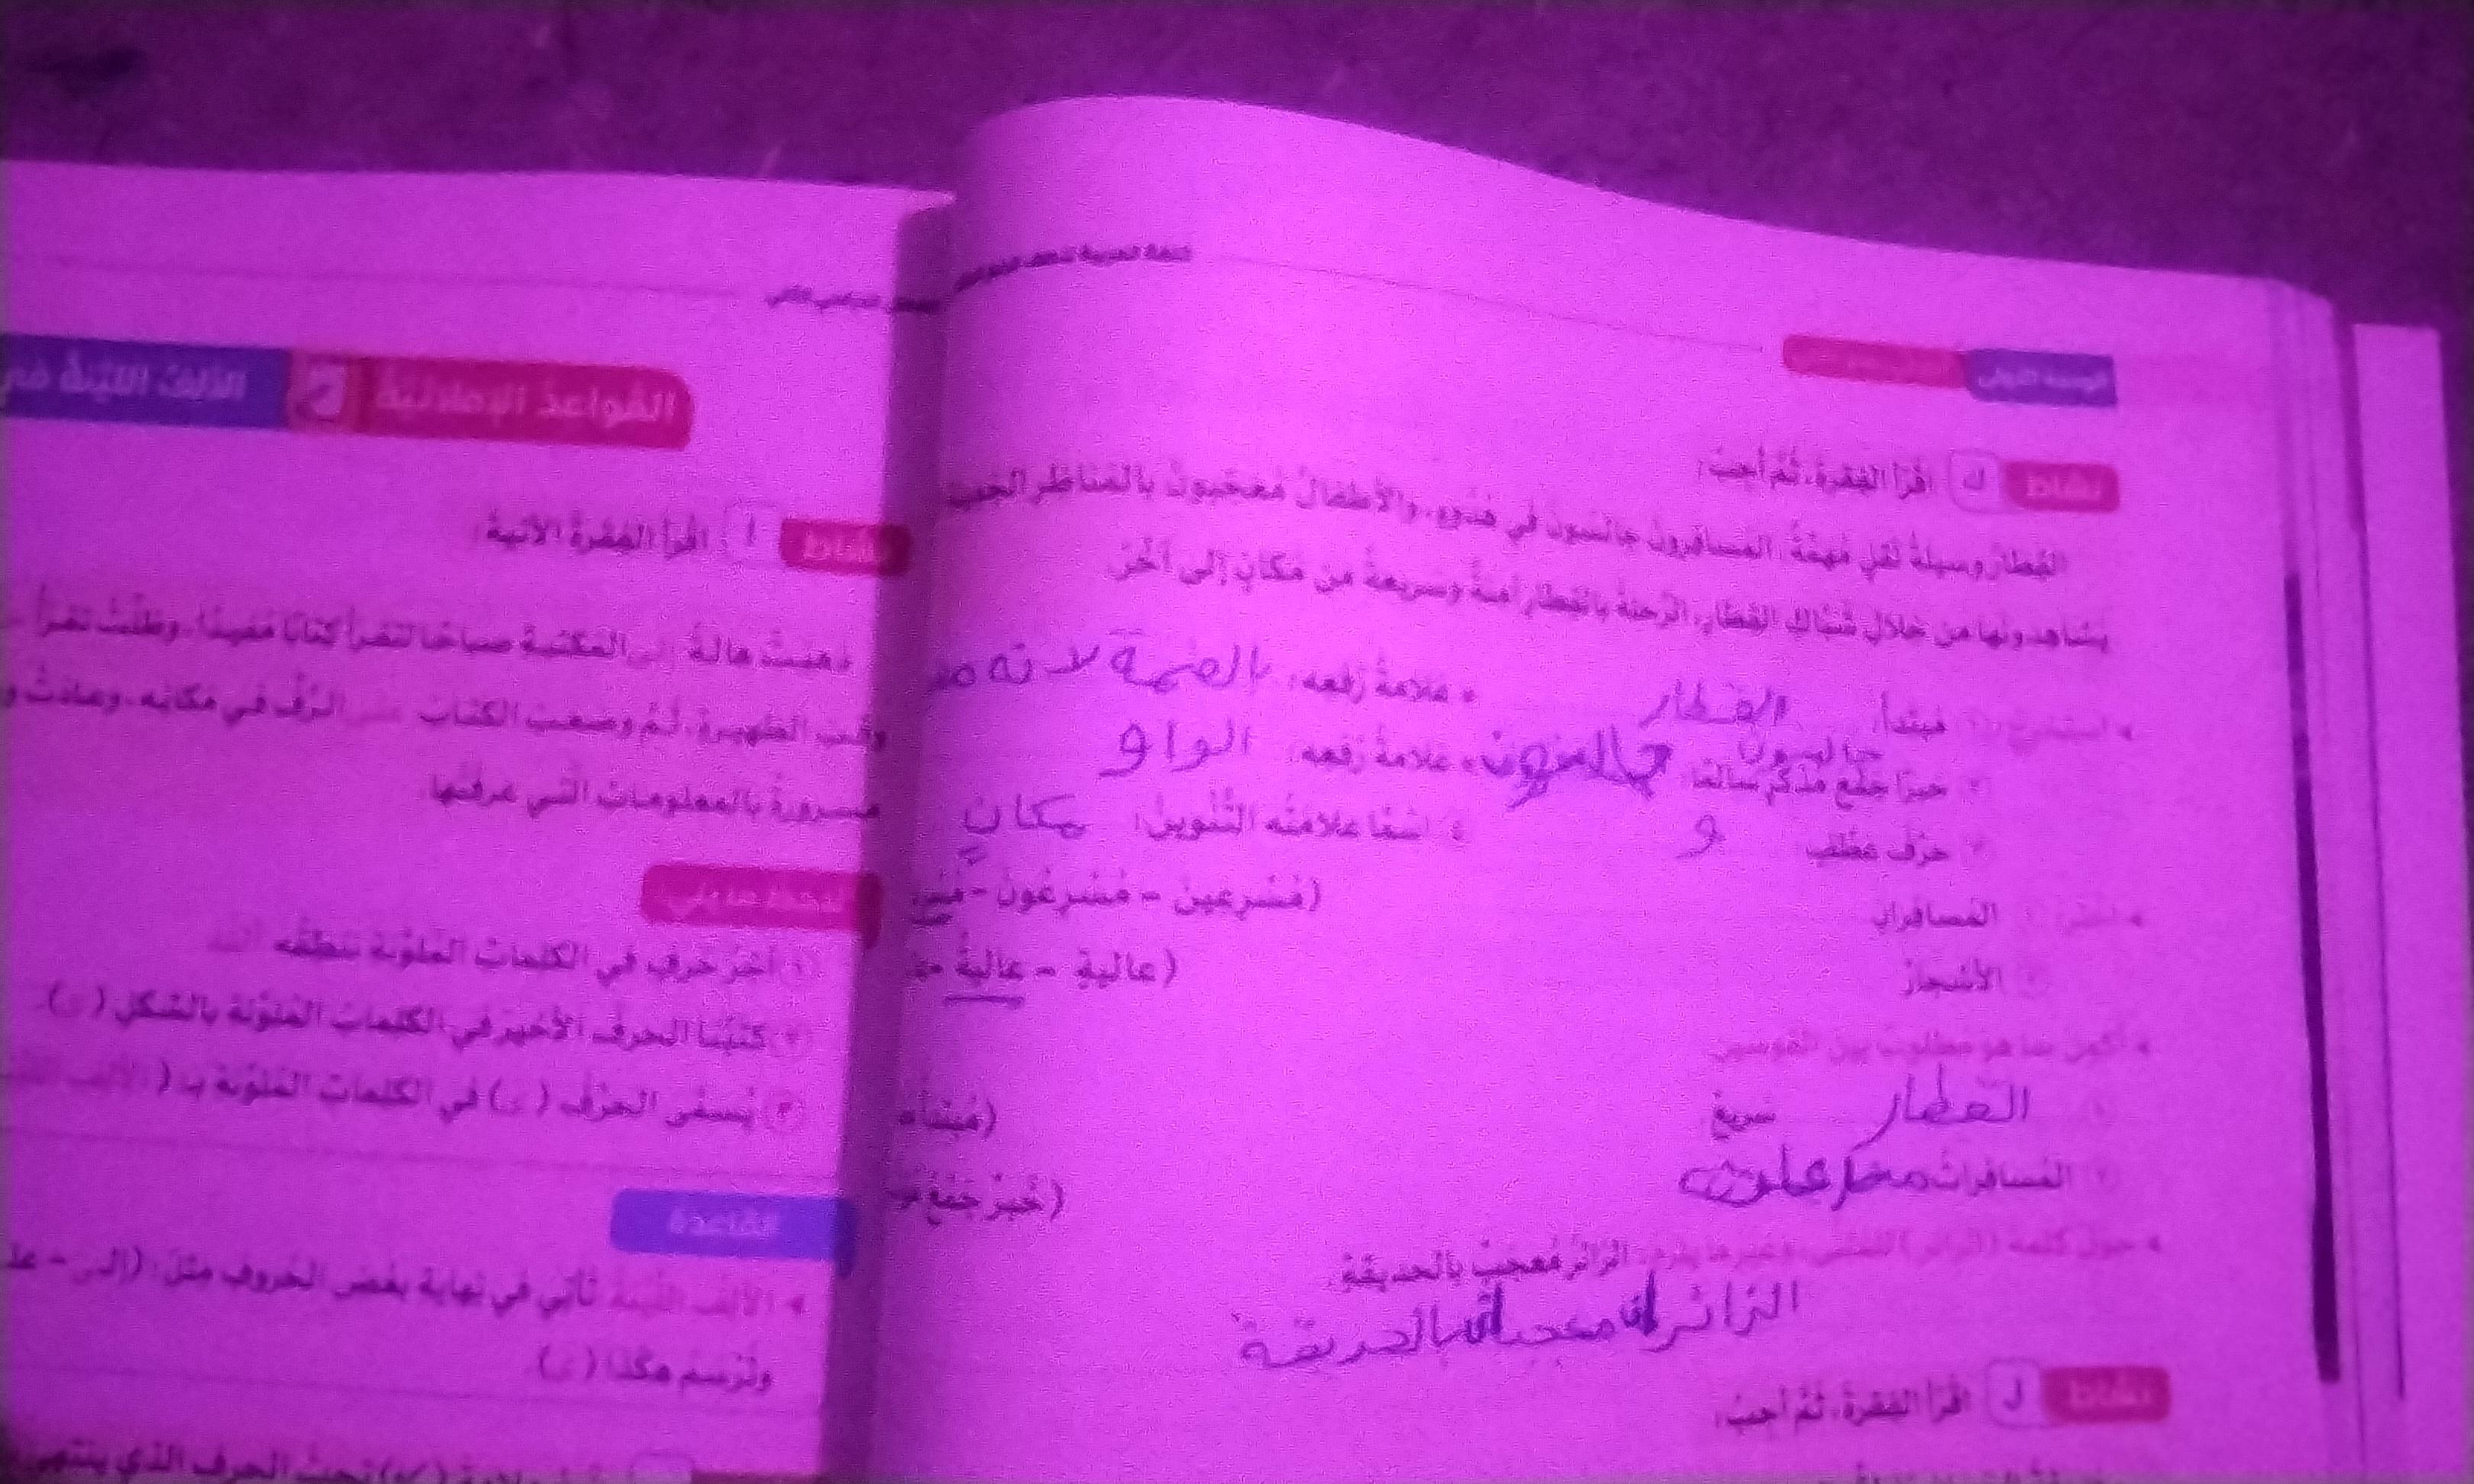 اقرأ الفقرة، ثم أجب:
نشاط ك
القطار وسيلة نقل مهمة، المسافرون جالسون في هدوء، والأطفال معجبون بالمناظر
يشاهدونها من خلال شباك القطار، الرحلة بالقطار آمنة وسريعة من مكان إلى آخر.
استخرج: مبتدأ: القطار علامة رفعه: بالضمة لا نه
خبرا جمع مذكر سالما: جالسون جالسون علامة رفعه: الواو
٣ حرف عطف: و ٤ اسما علامته التنوين: مكانٍ
المسافران (مسرعين - مسرعون -
الأشجار (عالية - عالية -
أكمل بما هو مطلوب بين القوسين:
القطار سريع (مبتدأ
المسافرات (خبر جمع
حول كلمة (الزائر) للمثنى، وغير ما يلزم: الزائر معجب بالحديقة.
الزائران معجبان بالحديقة
نشاط ل اقرأ الفقرة، ثم أجب:
القواعد الإملائية الألف اللينة في
نشاط أ اقرأ الفقرة الآتية:
ذهبت هالة إلى المكتبة صباحا لتقرأ كتابا مفيدا، وظلت تقرأ
وقت الظهيرة، ثم وضعت الكتاب على الرف في مكانه، وعادت و
مسرورة بالمعلومات التي عرفتها.
١ آخر حرف في الكلمات الملونة ننطقه
٢ كتبنا الحرف الأخير في الكلمات الملونة بالشكل (ى).
٣ يسمى الحرف (ى) في الكلمات الملونة بـ (الألف
القاعدة
الألف اللينة تأتي في نهاية بعض الحروف مثل: (إلى -
وترسم هكذا (ى).
تحت الحرف الذي ينتهي